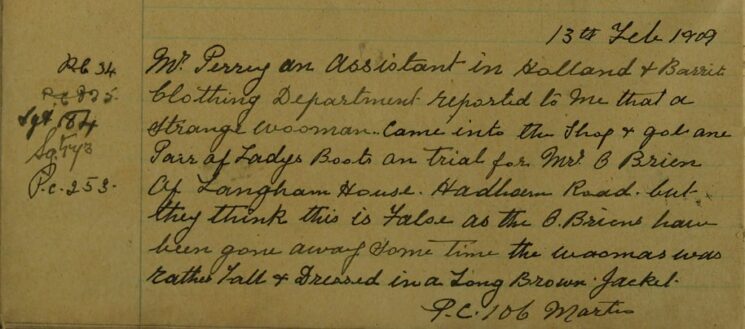 13th Feb 1909
P.C 34
P.C 335.
Sgt 184
Sgt
P.C. 253.
Mr Perrey an Assistant in Holland & Barrit
Clothing Department reported to me that a
strange wooman. Came into the Shop & got one
Parr of Ladys Boots on trial for Mrs O Brien
Of Langham House. Hadham Road. but
they think this is False as the O.Briens have
been gone away Some time the woomas was
rather Tall & Dressed in a Long Brown Jacket.
P.C. 106 Martin